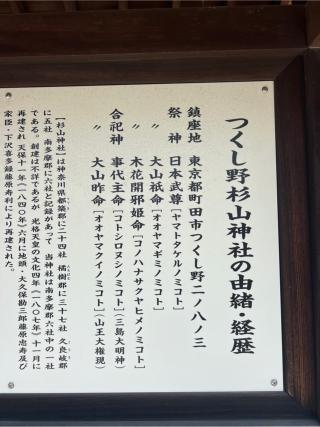 つくし野杉山神社の由緒・経歴
鎮座地　東京都町田市つくし野二ノ八ノ三
祭　神　日本武尊［ヤマトタケルノミコト］
〃　大山祇命［オオヤマギミノミコト］
〃　木花開邪姫命［コノハナサクヤヒメノミコト］
合祀神　事代主命［コトシロヌシノミコト］（三島大明神）
〃　大山昨命［オオヤマクイノミコト］（山王大権現）
【杉山神社】は神奈川県都築郡に二十四社　橘樹郡に三十七社　久良岐郡
に五社　南多摩郡に六社と記録があって　当神社は南多摩郡六社中の一社
である。　創建は不詳であるが　光格天皇の文化四年（一八〇七年）十一月に
再建され　天保十一年（一八四〇年）六月に地頭・大久保勘三郎藤原忠寿及び
家臣・下沢喜多録藤原寿利により再建された。